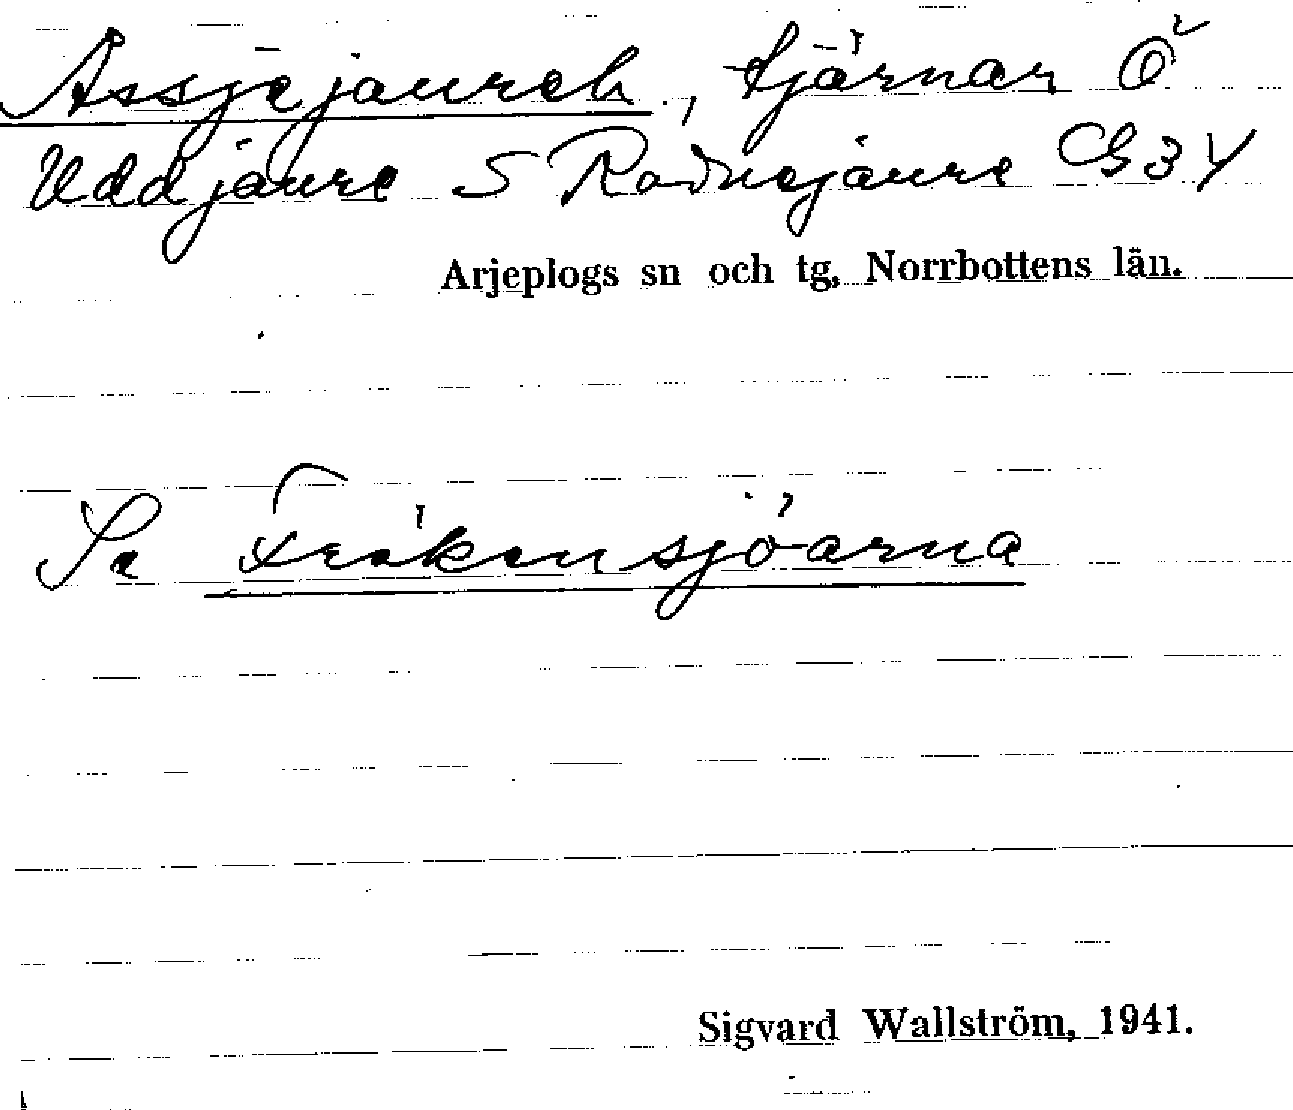 Assjejaureh, tjärnar Ö
Uddjaure S Radnejaure G3Y
Arjeplogs sn och tg, Norrbottens län.
Se Fräkensjöarna
Sigvard Wallström, 1941.